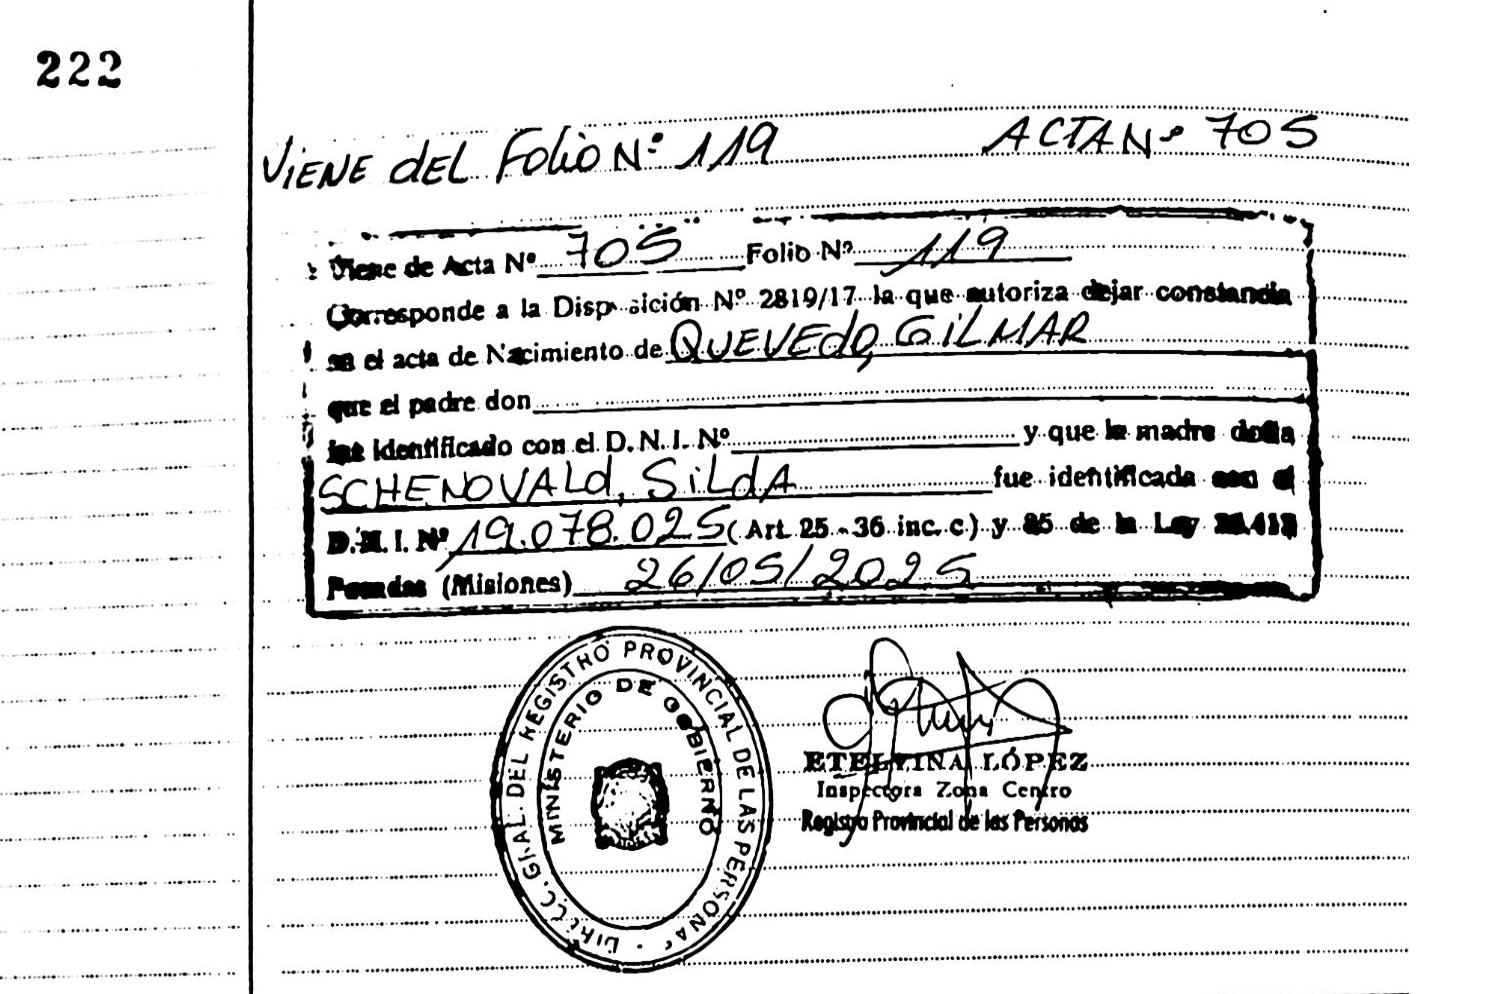 222
Viene del Folio Nº 119 ACTA Nº 705
Viene de Acta Nº 705 Folio Nº 119
Corresponde a la Disposición Nº 2819/17 la que autoriza dejar constancia
en el acta de Nacimiento de QUEVEdo, GiLMAR
que el padre don
fue identificado con el D. N. I. Nº y que la madre doña
SCHENOVALd, SiLdA fue identificada con el
D. N. I. Nº 19.078.025 (Art. 25 - 36 inc. c) y 85 de la Ley 26.413
Posadas (Misiones) 26/05/2025
DIRECC. GRAL. DEL REGISTRO PROVINCIAL DE LAS PERSONAS
MINISTERIO DE GOBIERNO
ETELVINA LÓPEZ
Inspectora Zona Centro
Registro Provincial de las Personas